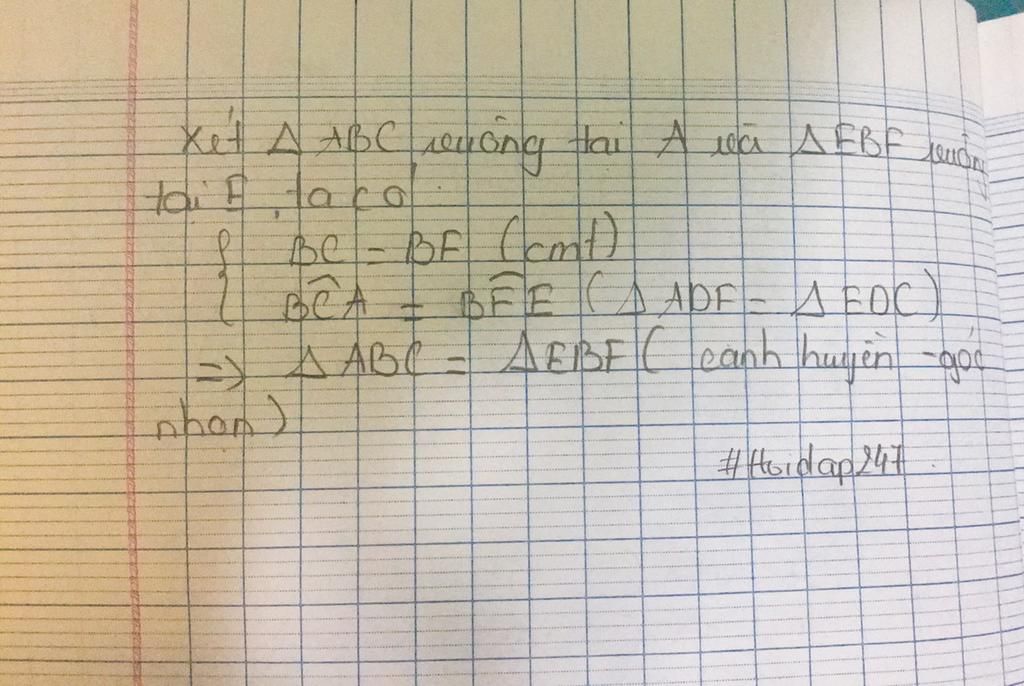 Xét Δ ABC vuông tại A và Δ EBF vuông
tại E, ta có
{ BC = BF (cmt)
BĈA = BF̂E (Δ ADF = Δ EDC)
=> Δ ABC = Δ EBF (cạnh huyền - góc
nhọn)
#Hoidap247